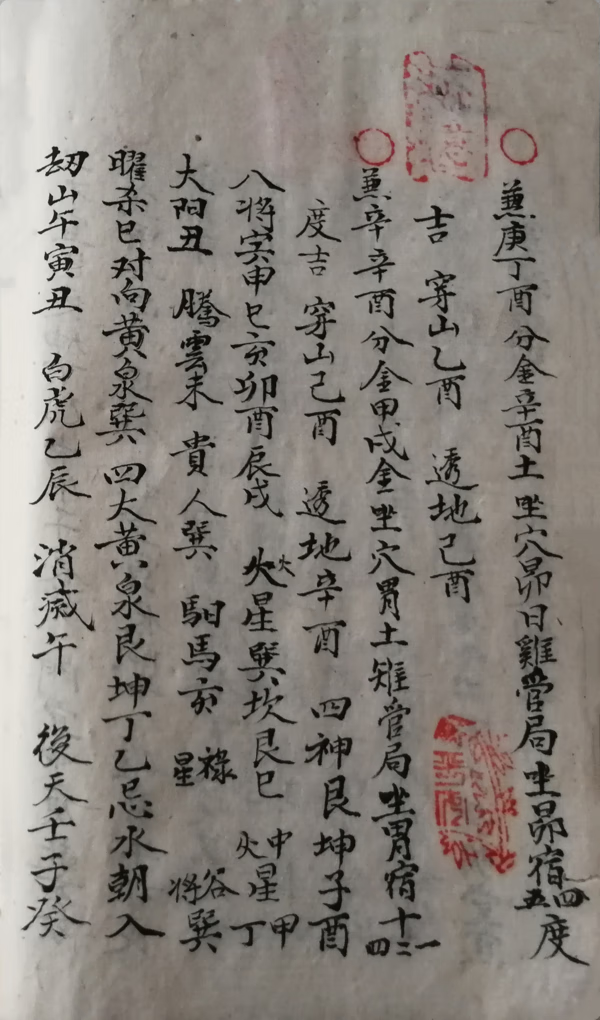 兼庚丁酉分金辛酉土坐穴昴日雞管局坐昴宿四五度
吉 穿山乙酉 透地己酉
兼辛辛酉分金甲戌金坐穴胃土雉管局坐胃宿十一二四
度吉 穿山己酉 透地辛酉 四神艮坤子酉
八將寅申巳亥卯酉辰戌 火星巽坎艮巳 中火星甲丁
大阳丑 騰雲未 貴人巽 馹馬亥 祿星 谷将巽
曜杀巳对向黄泉巽 四大黄泉艮坤丁乙忌水朝入
劫山午寅丑 白虎乙辰 消滅午 後天壬子癸